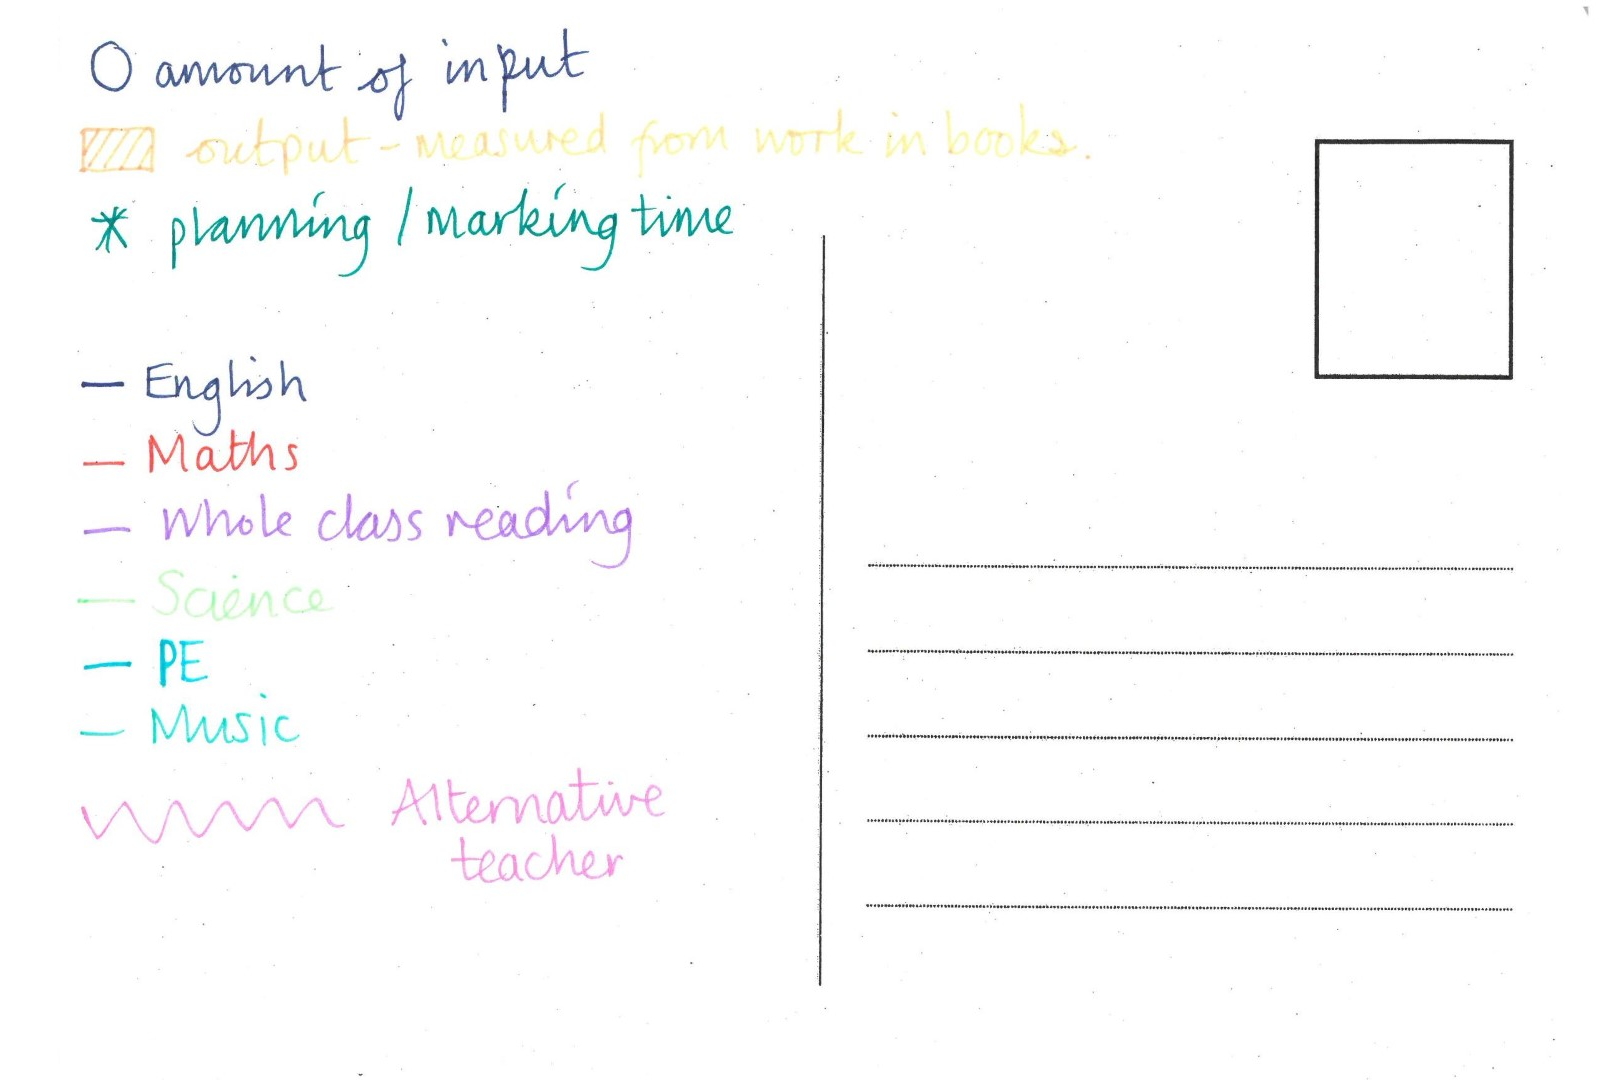 O amount of input
output - measured from work in books.
* planning / marking time
— English
— Maths
— Whole class reading
— Science
— PE
— Music
Alternative
teacher